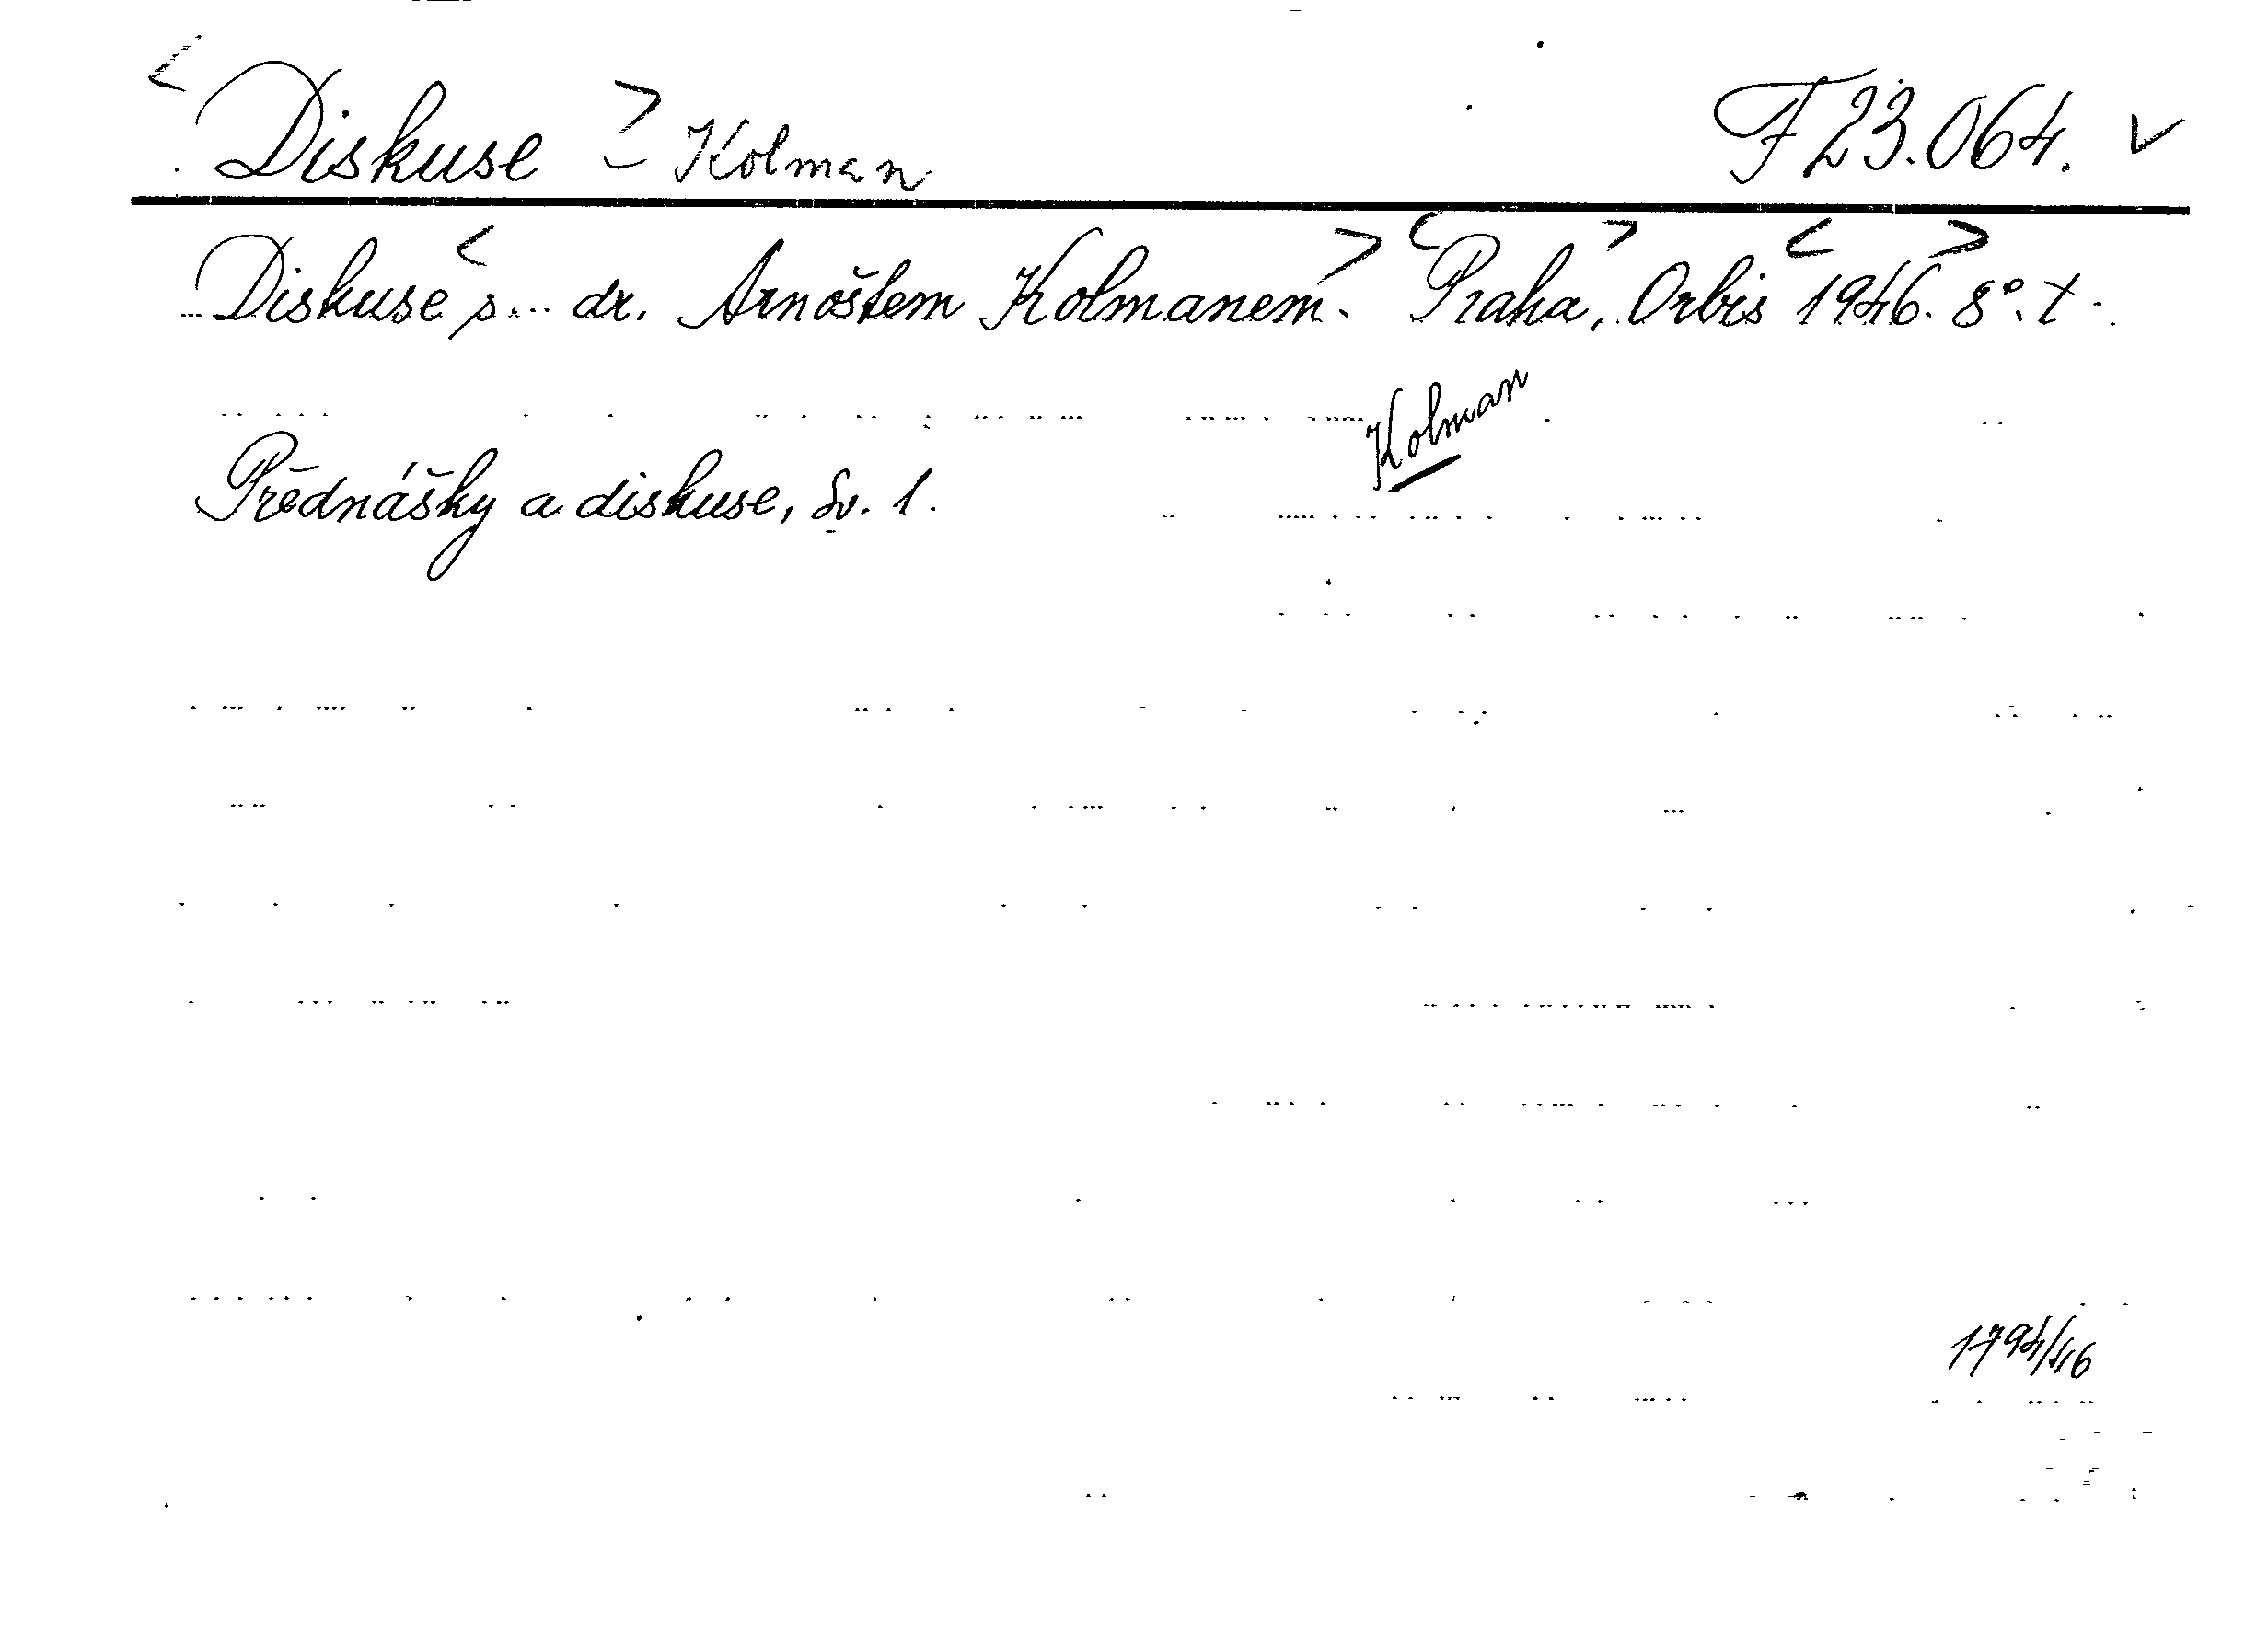 < Diskuse > - Kolman F 23.064. ✓
Diskuse < s... dr. Arnoštem Kolmanem. > < Praha, > Orbis < 1946. > 8°. t.
Kolman
Přednášky a diskuse, sv. 1.
1794/46